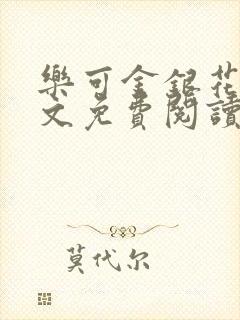 樂可金銀花
文免費閱讀
莫代尔